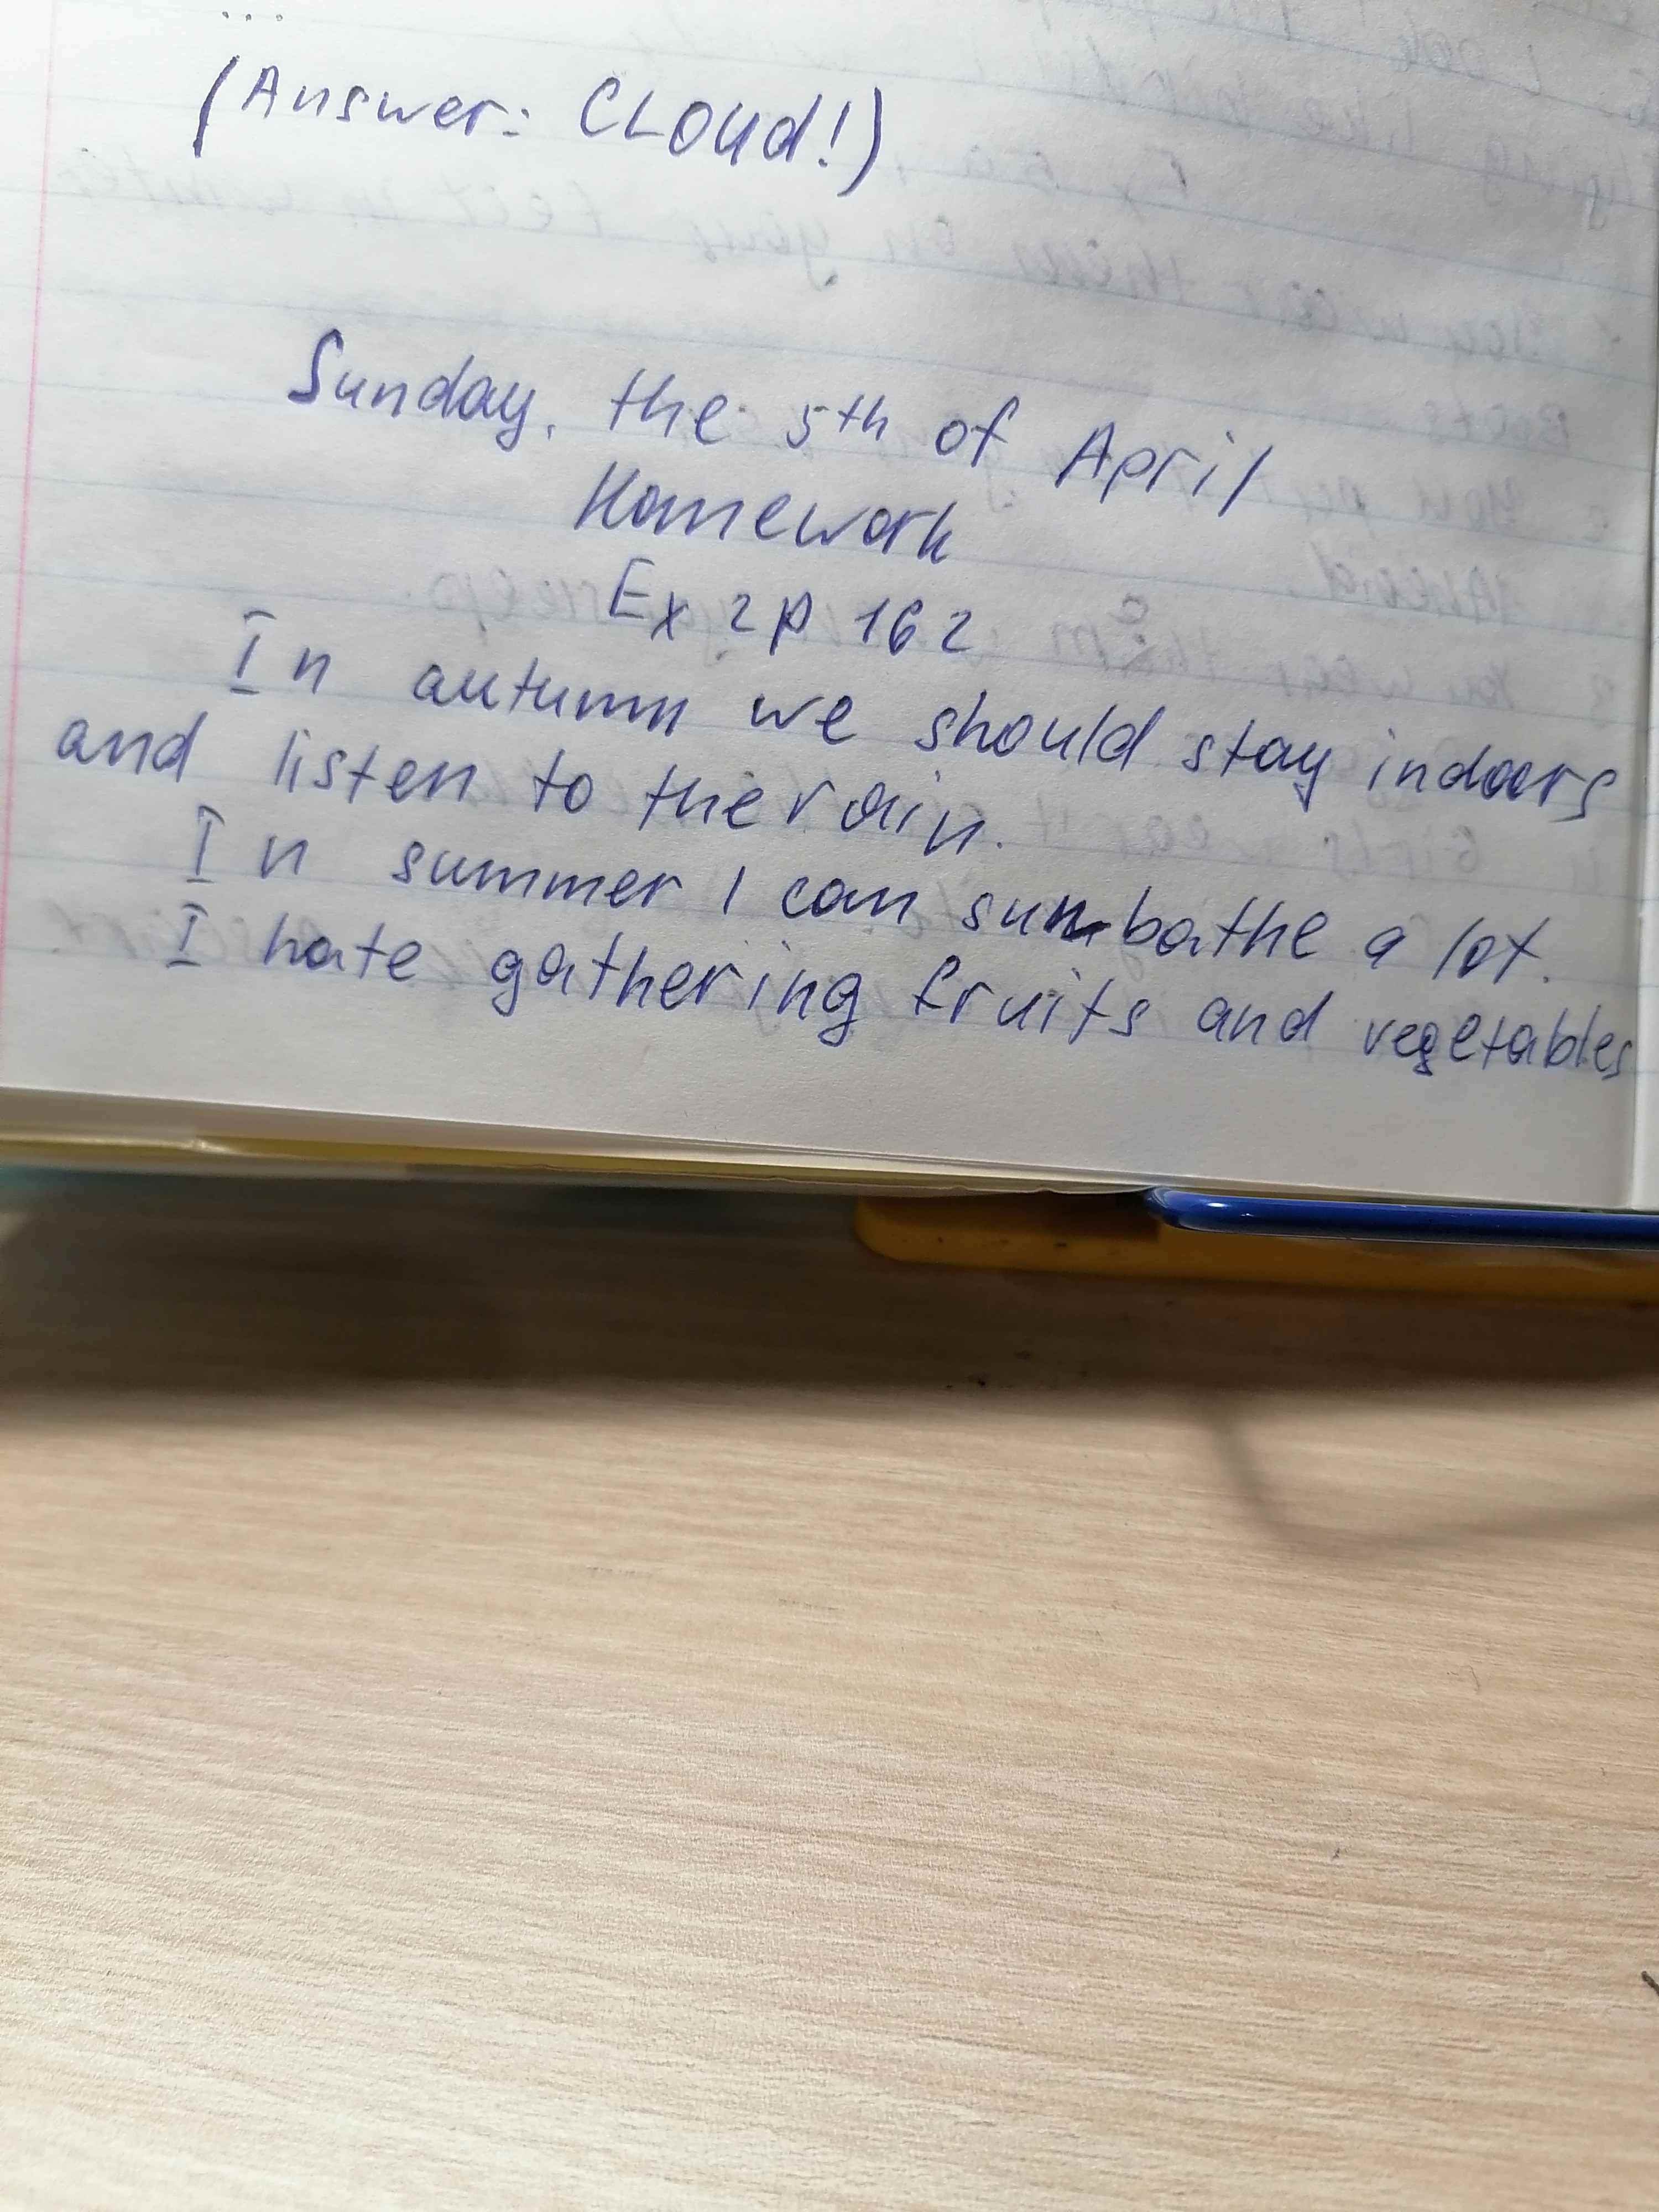 ...
(Answer: CLOUd!)
Sunday, the 5th of April
Homework
Ex 2 p 162
In autumn we should stay indoors
and listen to the rain.
In summer I can sunbathe a lot.
I hate gathering fruits and vegetables